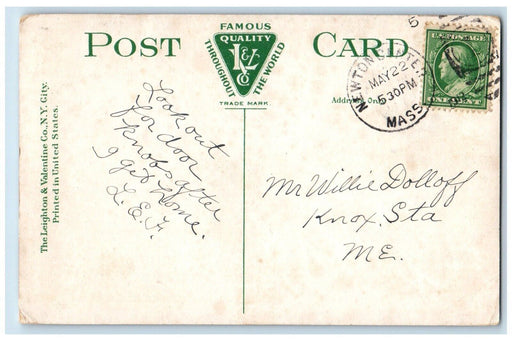 POST CARD
FAMOUS
QUALITY
THROUGHOUT THE WORLD
L&V Co
TRADE MARK
The Leighton & Valentine Co., N.Y. City.
Printed in United States.
NEWTON
MAY 22
5 30 PM
MASS
ONE CENT
Look out
for door
knobs after
I get home.
L. E. F.
Mr Willie Dolloff
Knox. Sta
ME.